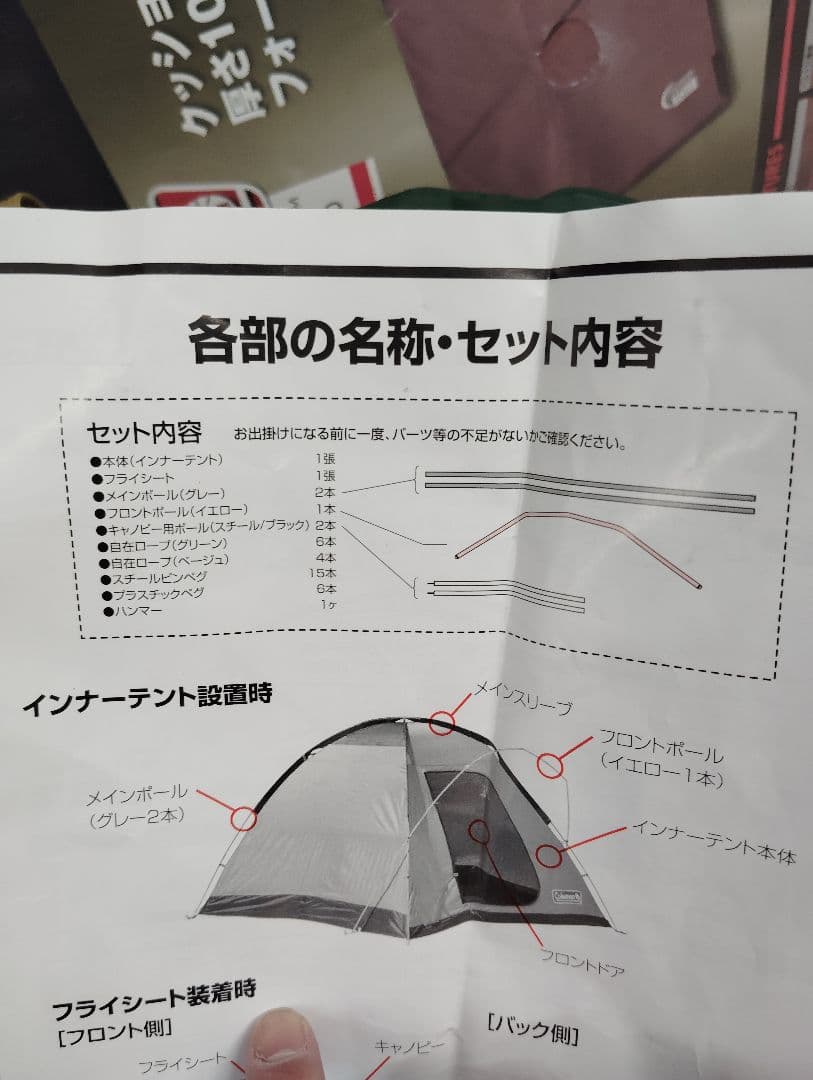 クッショ
厚さ10
フォー
各部の名称・セット内容
セット内容 お出掛けになる前に一度、パーツ等の不足がないかご確認ください。
●本体(インナーテント) 1張
●フライシート 1張
●メインポール(グレー) 2本
●フロントポール(イエロー) 1本
●キャノピー用ポール(スチール/ブラック) 2本
●自在ロープ(グリーン) 6本
●自在ロープ(ベージュ) 4本
●スチールピンペグ 15本
●プラスチックペグ 6本
●ハンマー 1ヶ
インナーテント設置時
メインスリーブ
フロントポール
(イエロー1本)
メインポール
(グレー2本)
インナーテント本体
Coleman
フロントドア
フライシート装着時
[フロント側]
[バック側]
フライシート
キャノピー